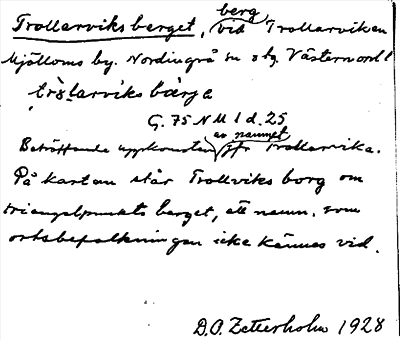 Trollarviksberget, berg vid Trollarviken
Mjälloms by. Nordingrå sn o tg. Västernorrl
trös̱larviksbærjə
G. 75 N M 1 d. 25
Beträffande uppkomsten av namnet jfr Trollarvika.
På kartan står Trollviks borg om
triangelpunkts berget, ett namn, som
ortsbefolkningen icke kännes vid.
D.O. Zetterholm 1928